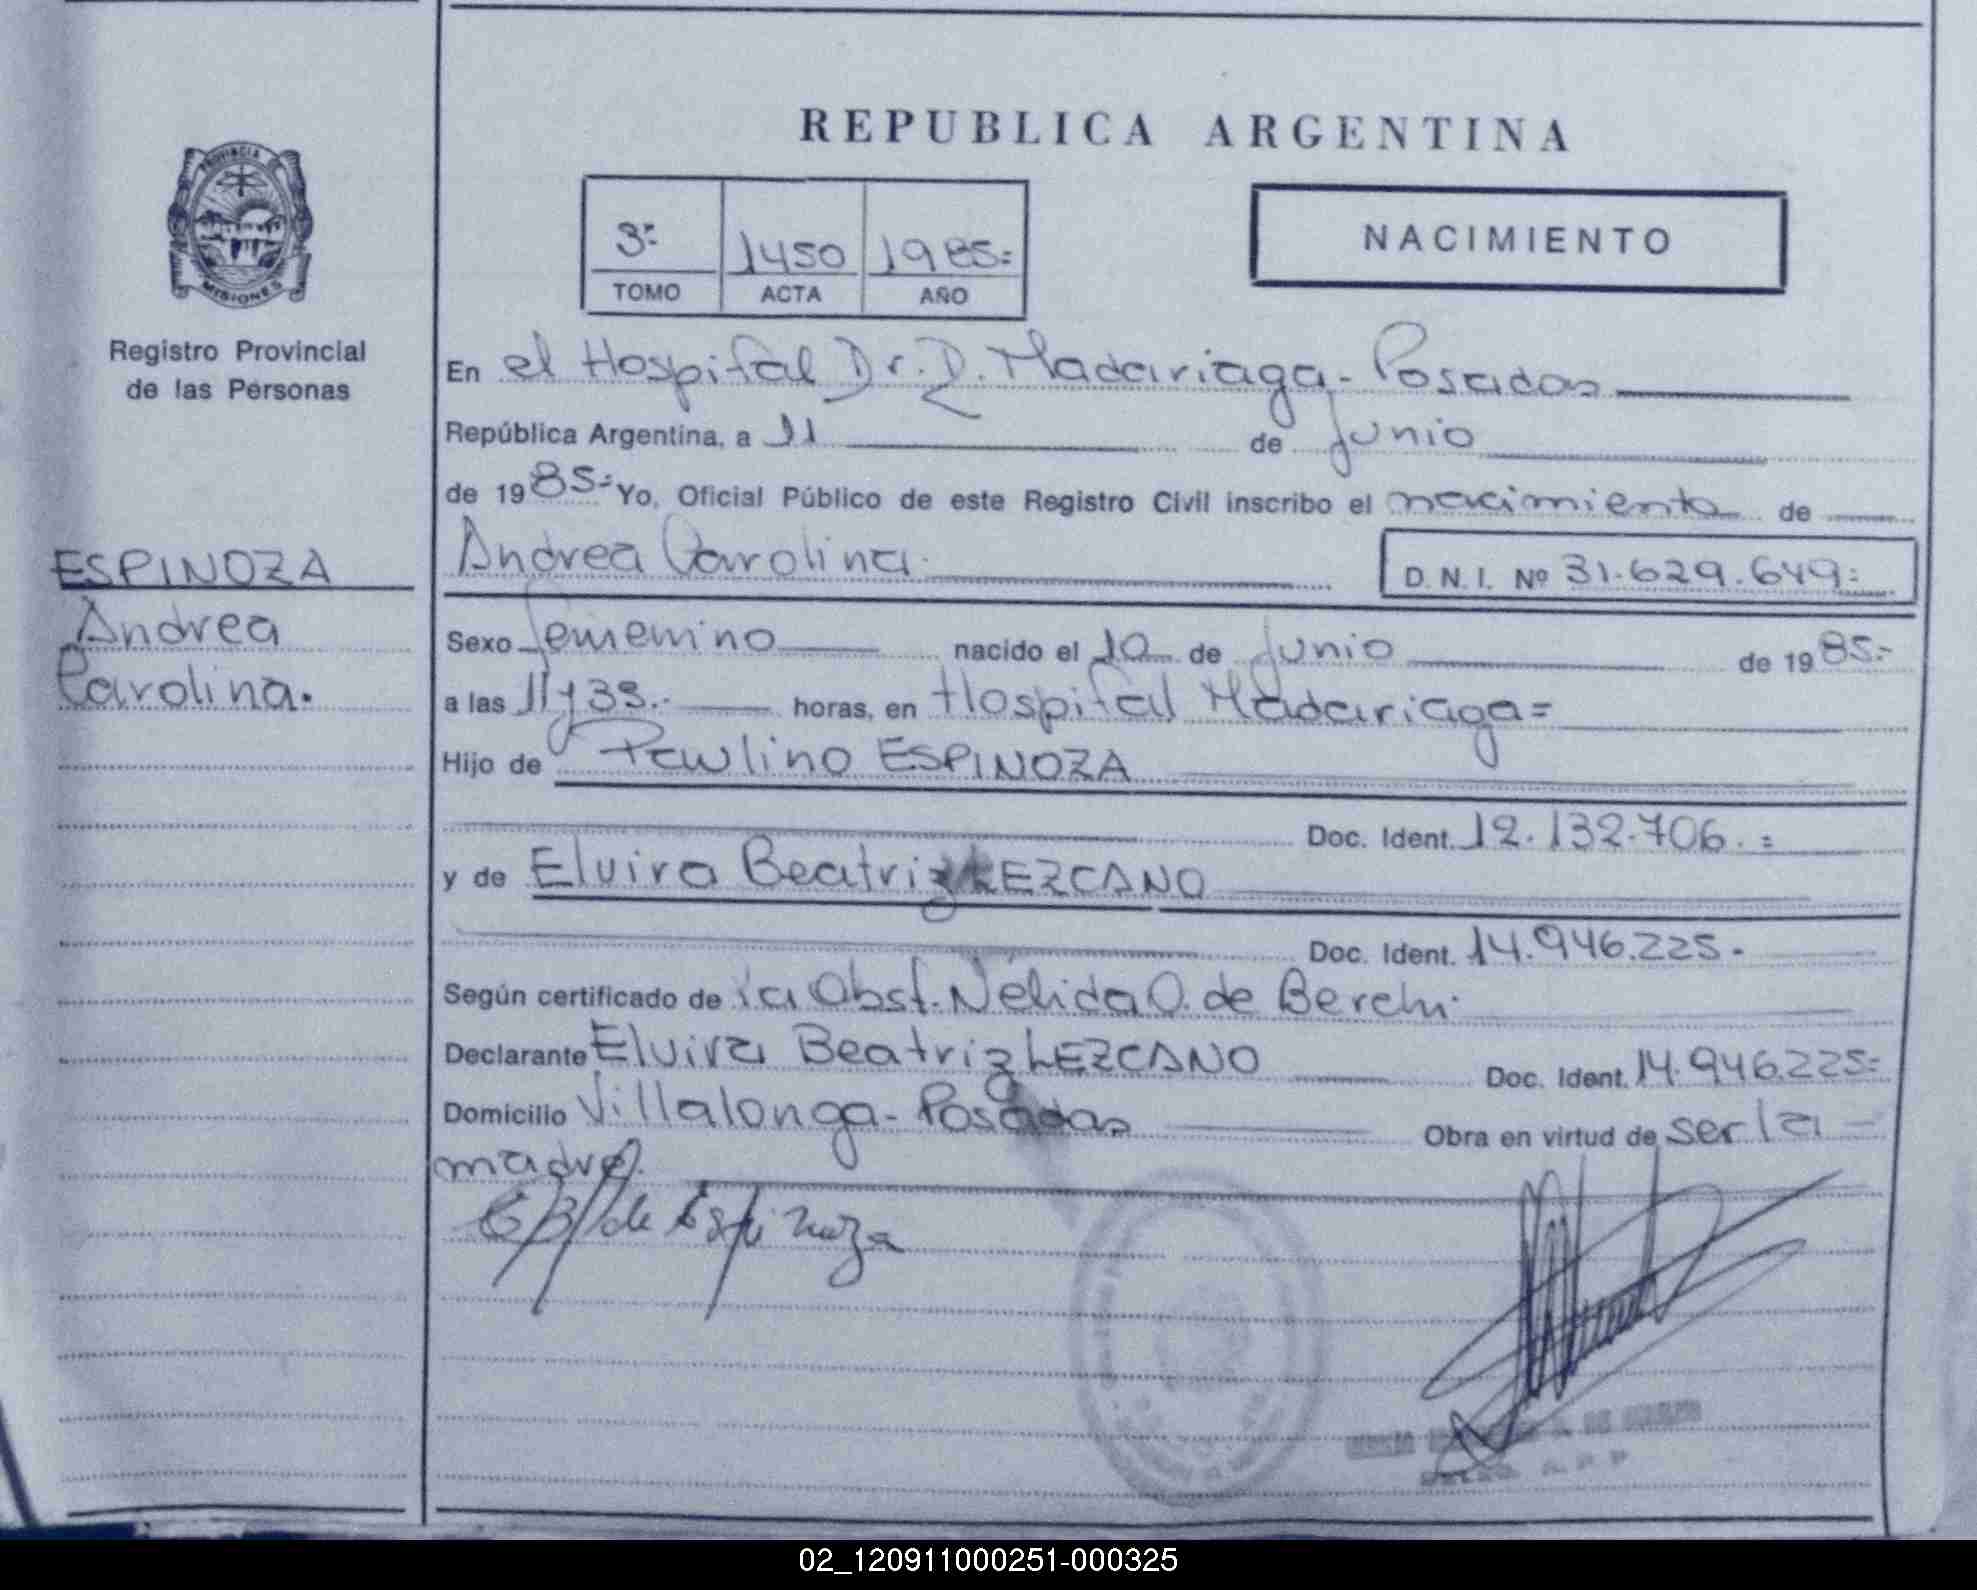 PROVINCIA DE
MISIONES
Registro Provincial
de las Personas
ESPINOZA
Andrea
Carolina.
REPUBLICA ARGENTINA
3º 1450 1985.=
TOMO ACTA AÑO
NACIMIENTO
En el Hospital Dr. D. Madariaga - Posadas
República Argentina, a 11 de Junio
de 1985.= Yo, Oficial Público de este Registro Civil inscribo el nacimiento de
Andrea Carolina. D.N.I. Nº 31.629.649.=
Sexo femenino nacido el 10 de Junio de 1985.-
a las 11 y 35.- horas, en Hospital Madariaga=
Hijo de Paulino ESPINOZA
Doc. Ident. 12.132.706.=
y de Elvira Beatriz LEZCANO
Doc. Ident. 14.946.225-
Según certificado de la Obst. Nélida O. de Berchi.
Declarante Elvira Beatriz LEZCANO Doc. Ident. 14.946.225=
Domicilio Villalonga - Posadas Obra en virtud de ser la
madre.
E B L de Espinoza
02_120911000251-000325